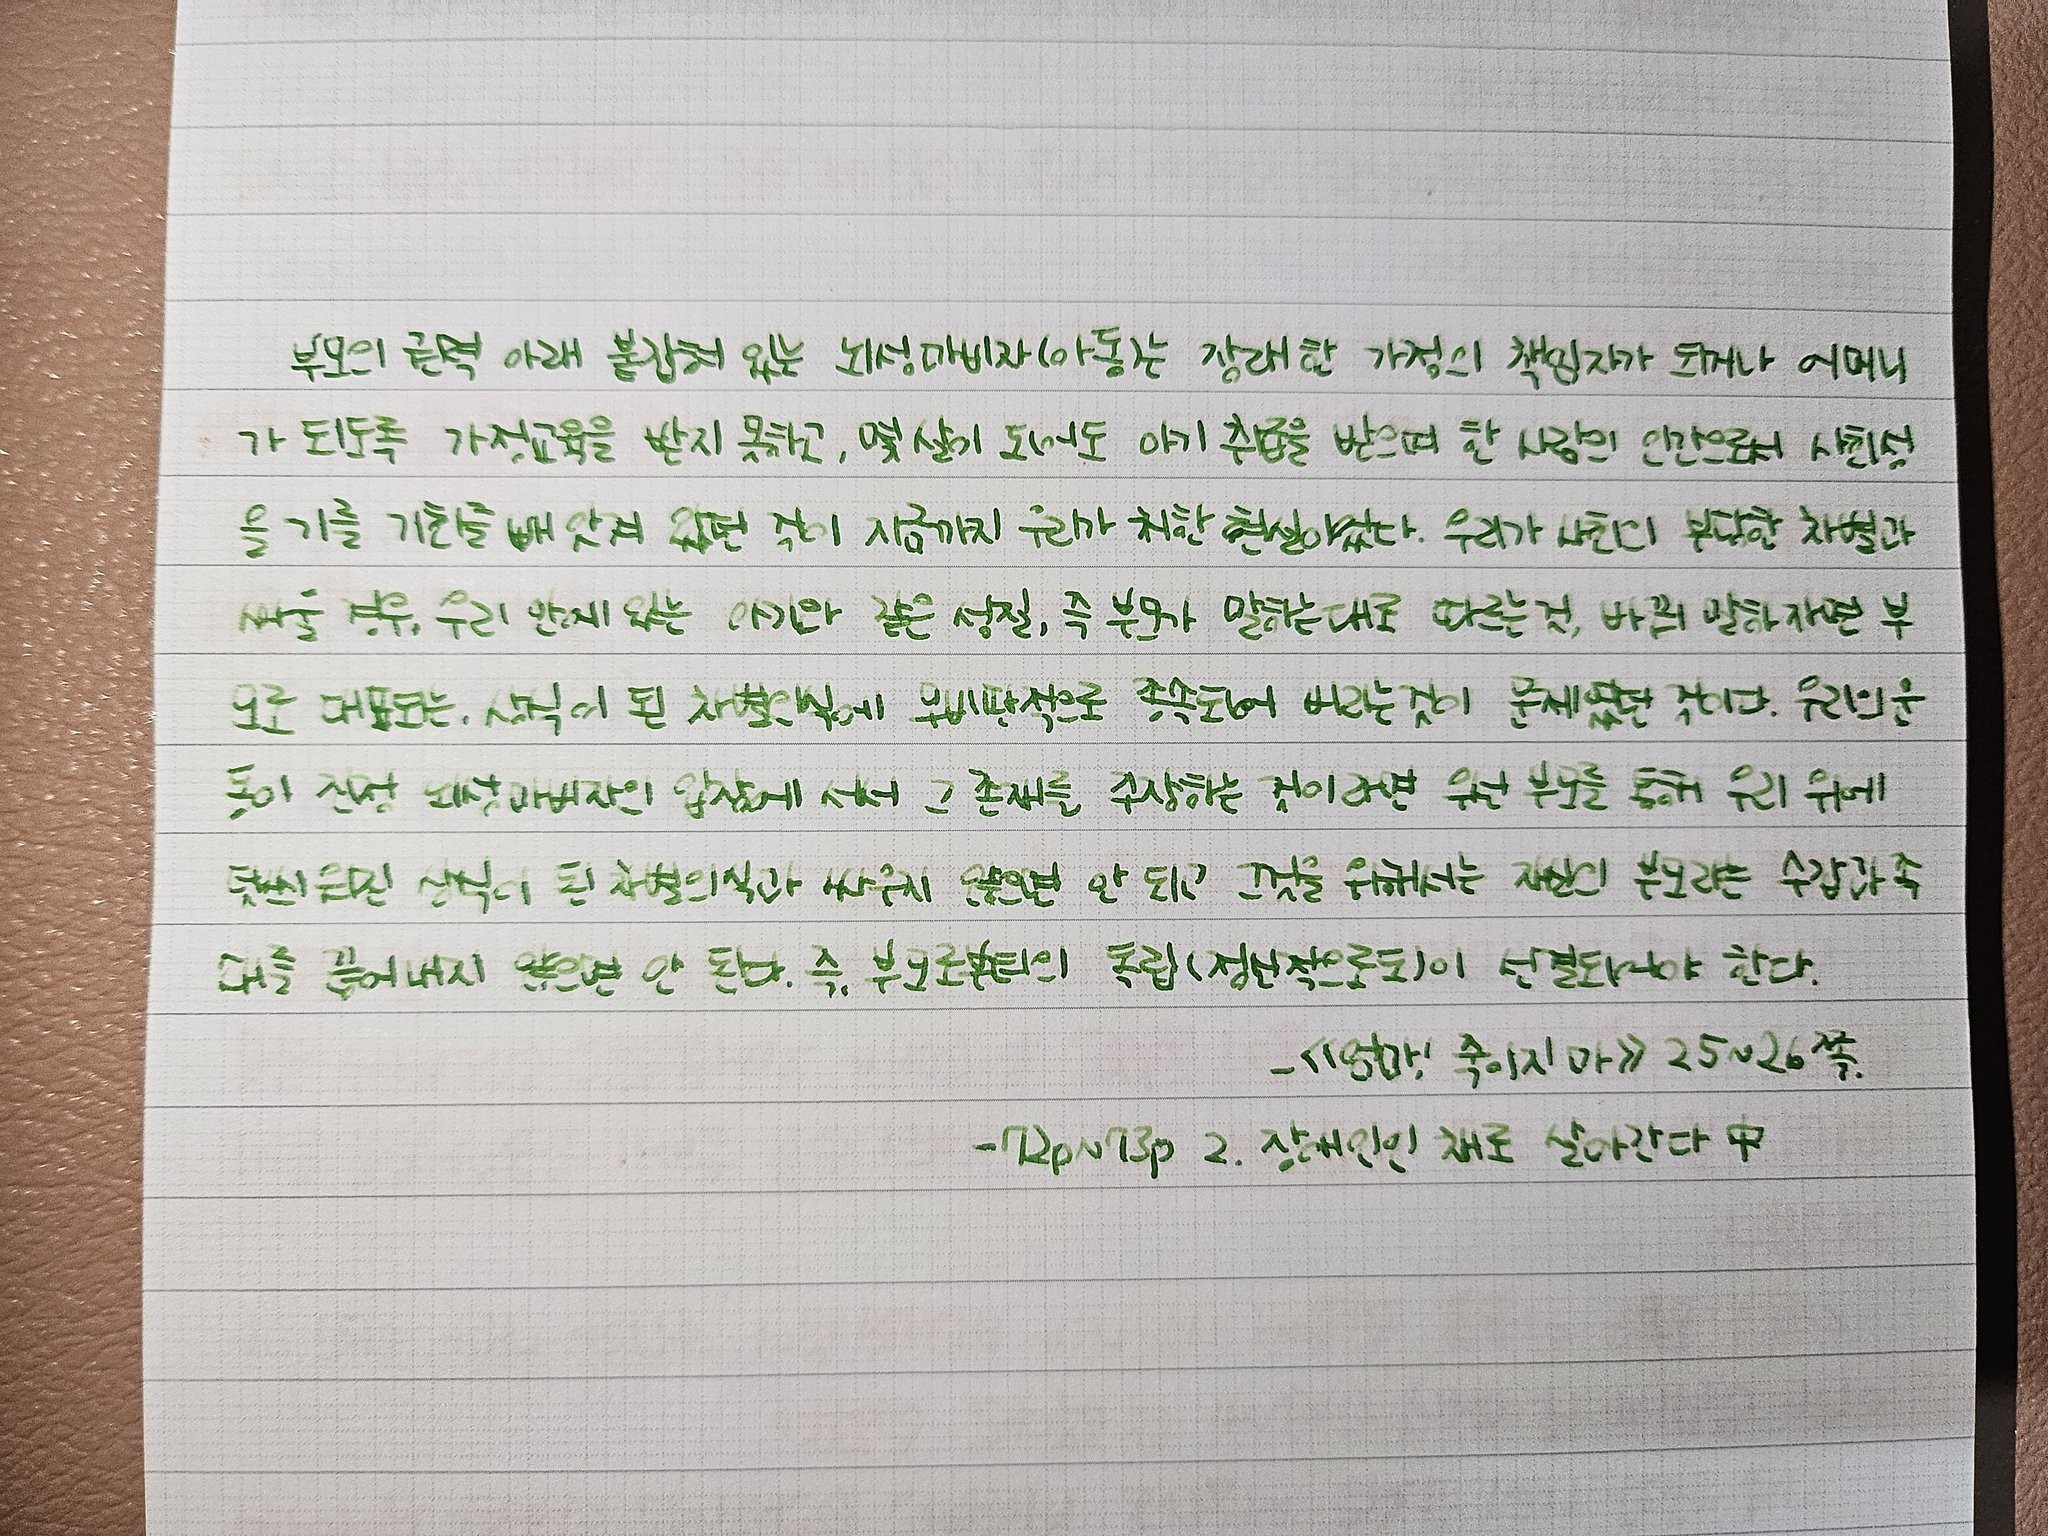 부모의 권력 아래 붙잡혀 있는 뇌성마비자(아동)는 장래 한 가정의 책임자가 되거나 어머니
가 되도록 가정교육을 받지 못하고, 몇 살이 되어도 아기 취급을 받으며 한 사람의 인간으로서 사회성
을 기를 기회를 빼앗겨 왔던 것이 지금까지 우리가 처한 현실이었다. 우리가 사회의 부당한 차별과
싸울 경우, 우리 안에 있는 아기와 같은 성질, 즉 부모가 말하는 대로 따르는 것, 바꿔 말하자면 부
모로 대표되는, 상식이 된 차별의식에 무비판적으로 종속되어 버리는 것이 문제였던 것이다. 우리의 운
동이 진정 뇌성마비자의 입장에 서서 그 존재를 주장하는 것이라면 우선 부모를 통해 우리 위에
덧씌워진 상식이 된 차별의식과 싸우지 않으면 안 되고 그것을 위해서는 자신의 부모라는 수갑과 족
대를 끊어내지 않으면 안 된다. 즉, 부모로부터의 독립(정신적으로도)이 선결되어야 한다.
-《엄마! 죽이지 마》 25~26쪽.
-72p~73p 2. 장애인인 채로 살아간다 中